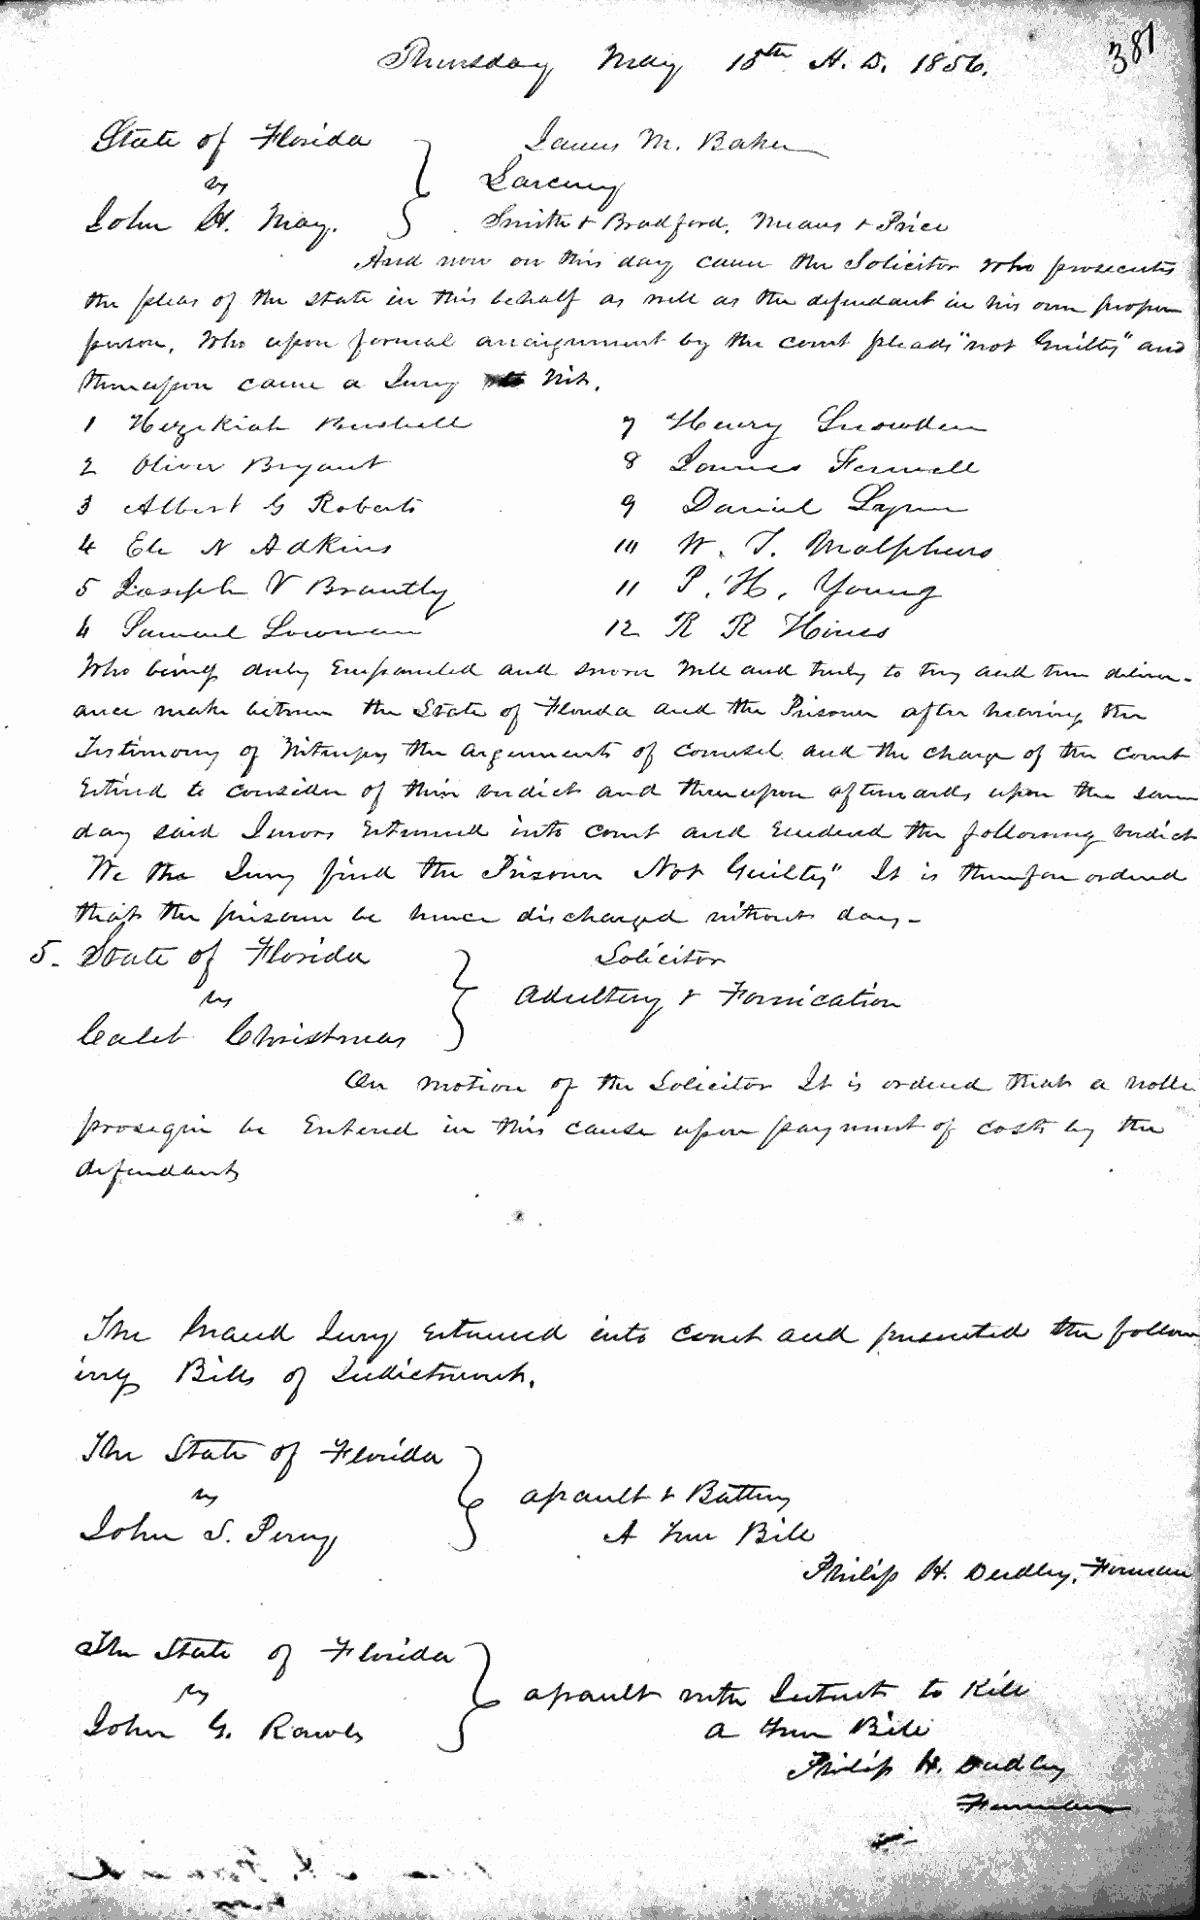 381
Thursday May 15th A. D. 1856.
State of Florida James M. Baker
vs Larceny
John H. May. Smith & Bradford, Means & Price
And now on this day came the Solicitor who prosecutes
the pleas of the State in this behalf as well as the defendant in his own proper
person, Who upon formal arraignment by the court pleads "not Guilty" and
thereupon came a Jury to wit.
1 Hezekiah Bushnell 7 Henry Snowden
2 Oliver Bryant 8 James Fennell
3 Albert G Roberts 9 Daniel Lynn
4 Eli N Adkins 10 W. T. Malpheurs
5 Joseph V Brantly 11 P. H. Young
6 Samuel Lowman 12 R R Hines
Who being duly Empaneled and sworn well and truly to try and true deliver-
ance make between the State of Florida and the Prisoner after hearing the
Testimony of Witnesses the arguments of counsel and the charge of the court
Retired to consider of their verdict and thereupon afterwards upon the same
day said Jurors Returned into court and Rendered the following verdict
We the Jury find the Prisoner Not Guilty" It is therefore ordered
that the prisoner be hence discharged without day-
5. State of Florida Solicitor
vs Adultery & Fornication
Caleb Christmas
On motion of the Solicitor It is ordered that a nolle
prosequi be Entered in this cause upon payment of costs by the
defendants
The Grand Jury returned into court and presented the follow
ing Bills of Indictment.
The State of Florida
vs assault & Battery
John S. Perry A True Bill
Philip H. Dudley, Forman
The State of Florida
vs assault with Intent to Kill
John G. Rawls a True Bill
Philip H. Dudley
Forman